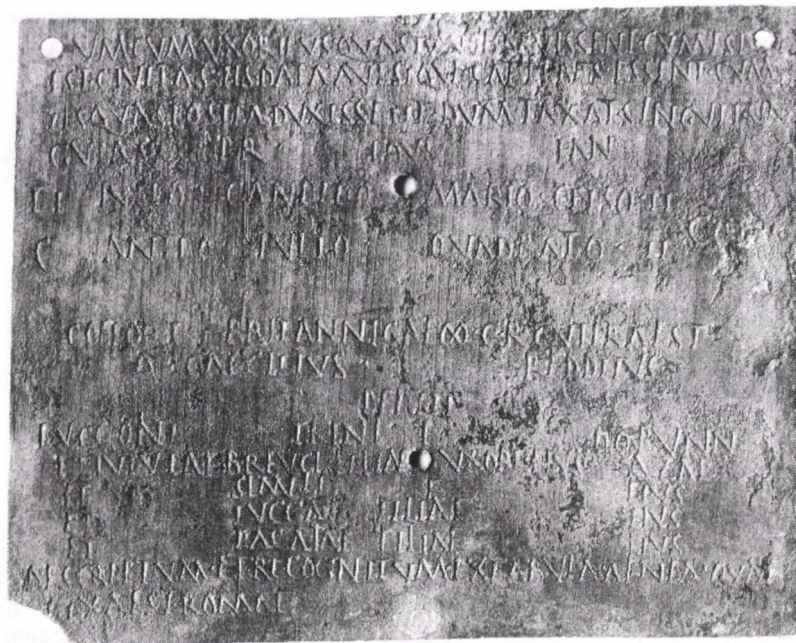 VM CVM VXORIBVS QVAS TVNC HABVISSENT CVM EST
CIVITAS IIS DATA AVT SIQVI CAELIBES ESSENT CVM
IIS QVAS POSTEA DVXISSENT DVMTAXAT SINGVLI SIN
GVLAS PR IDVS IAN
TI IVLIO CANDIDO MARIO CELSO II
C ANTIO IVLIO QVADRATO II COS
COHORT I BRITANNICAE ∞ C R CVI PRAEST
Q CAECILIVS REDDITVS
PEDITI
LVCCONI TRENI F DOBVNN
ET TVTVLAE BREVCI FILIAE VXORI EIVS AZAL
ET SIMILI F EIVS
ET LVCCAE FILIAE EIVS
ET PACATAE FILIAE EIVS
DESCRIPTVM ET RECOGNITVM EX TABVLA AENEA QVAE
FIXA EST ROMAE